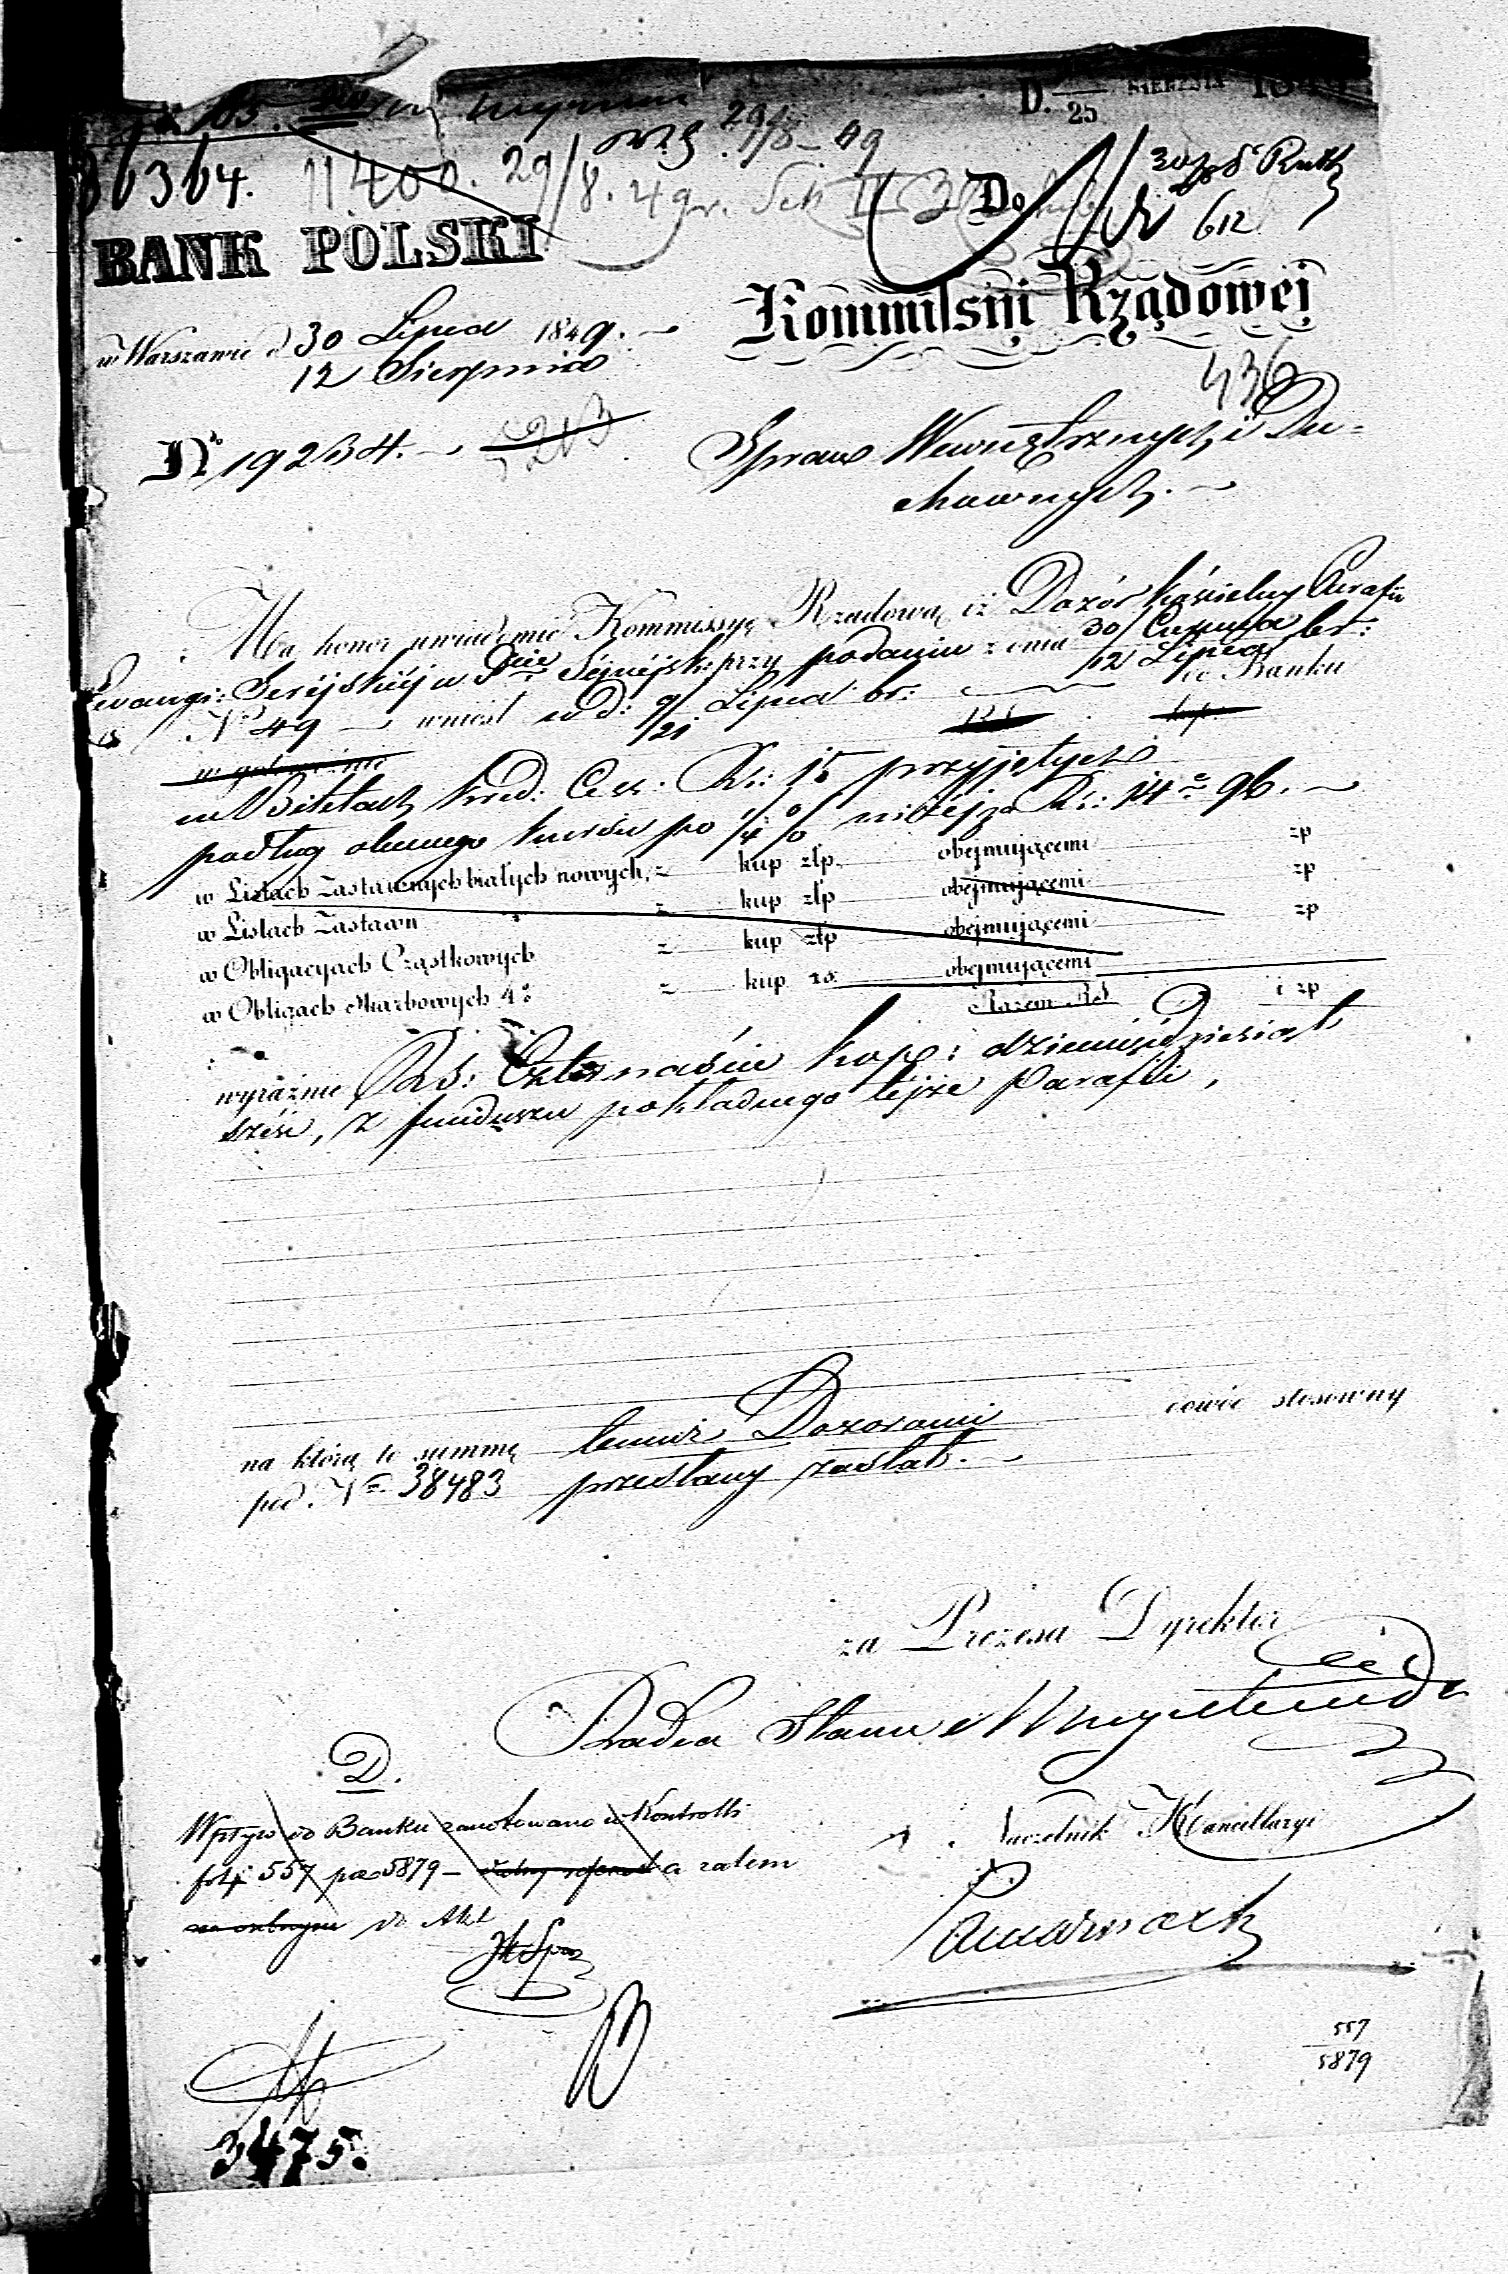 D. 25 SIERPNIA
29/8 - 49
36364. 11400. 29/8. 49 r.
Do
612
BANK POLSKI
Kommissyi Rządowej
w Warszawie d 30 Lipca 1849.
12 Sierpnia
436
Nº 19234.
5213
Spraw Wewnętrznych i Du-
chownych.
Ma honor uwiadomić Kommissyę Rządową iż Dozór Kościelny Parafii
Ewangi: Serejskiéj w Pcie Sejnejsk: przy podaniu z dnia 30/12 Czerwca/Lipca br:
Nº 49 wniósł w d: 9/21 Lipca br: do Banku
w gotowiźnie
w Biletach kred: Ces: Rs: 15 przyjętych
podług obecnego kursu po 1/4 % niżéj za Rs: 14 kop 96.
w Listach Zastawnych białych nowych, z kup złp obejmującemi zp
w Listach Zastawn z kup złp obejmującemi zp
w Obligacyach Cząstkowych z kup złp obejmującemi zp
w Obligach Skarbowych 4% z kup rs. obejmującemi
Razem RS i zp
wyraźnie Rs: Czternaście kop: dziewięćdziesiąt
sześć, z funduszu pokładnego tejże Parafii,
na którą to summę temuż Dozorowi dowód stosowny
pod Nº 38483 przesłany został.
za Prezesa Dyrektor
Radca Stanu
D.
Wpływ do Banku zanotowano w Kontrolli
fol. 557 poz 5879 - a zatem
do Akt
Naczelnik Kancellaryi
557
5879
3475.